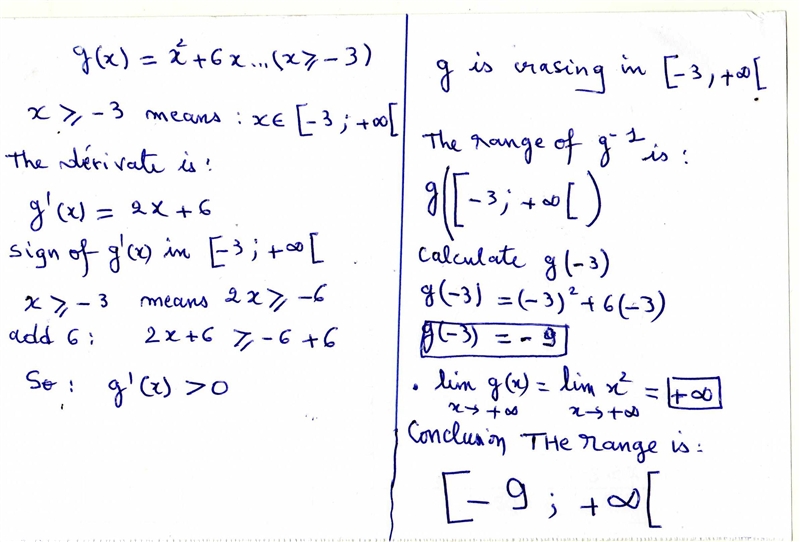 g(x) = x² + 6x ... (x ⩾ -3)
x ⩾ -3 means : x∈ [-3 ; +∞[
The dérivate is :
g'(x) = 2x + 6
sign of g'(x) in [-3 ; +∞[
x ⩾ -3 means 2x ⩾ -6
add 6 : 2x+6 ⩾ -6 +6
So : g'(x) >0
g is crasing in [-3, +∞[
The range of g⁻¹ is :
g([-3 ; +∞[)
Calculate g(-3)
g(-3) = (-3)² + 6(-3)
g(-3) = - 9
. lim g(x) = lim x² = +∞
x→+∞ x→+∞
Conclusion THe range is :
[- 9 ; +∞[